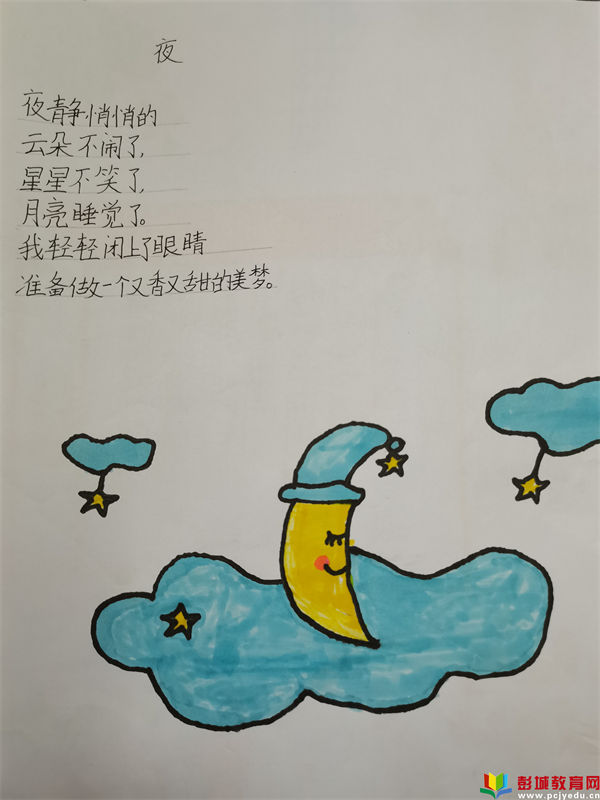 夜
夜静悄悄的
云朵不闹了,
星星不笑了,
月亮睡觉了。
我轻轻闭上了眼睛
准备做一个又香又甜的美梦。
彭城教育网
www.pcjyedu.cn